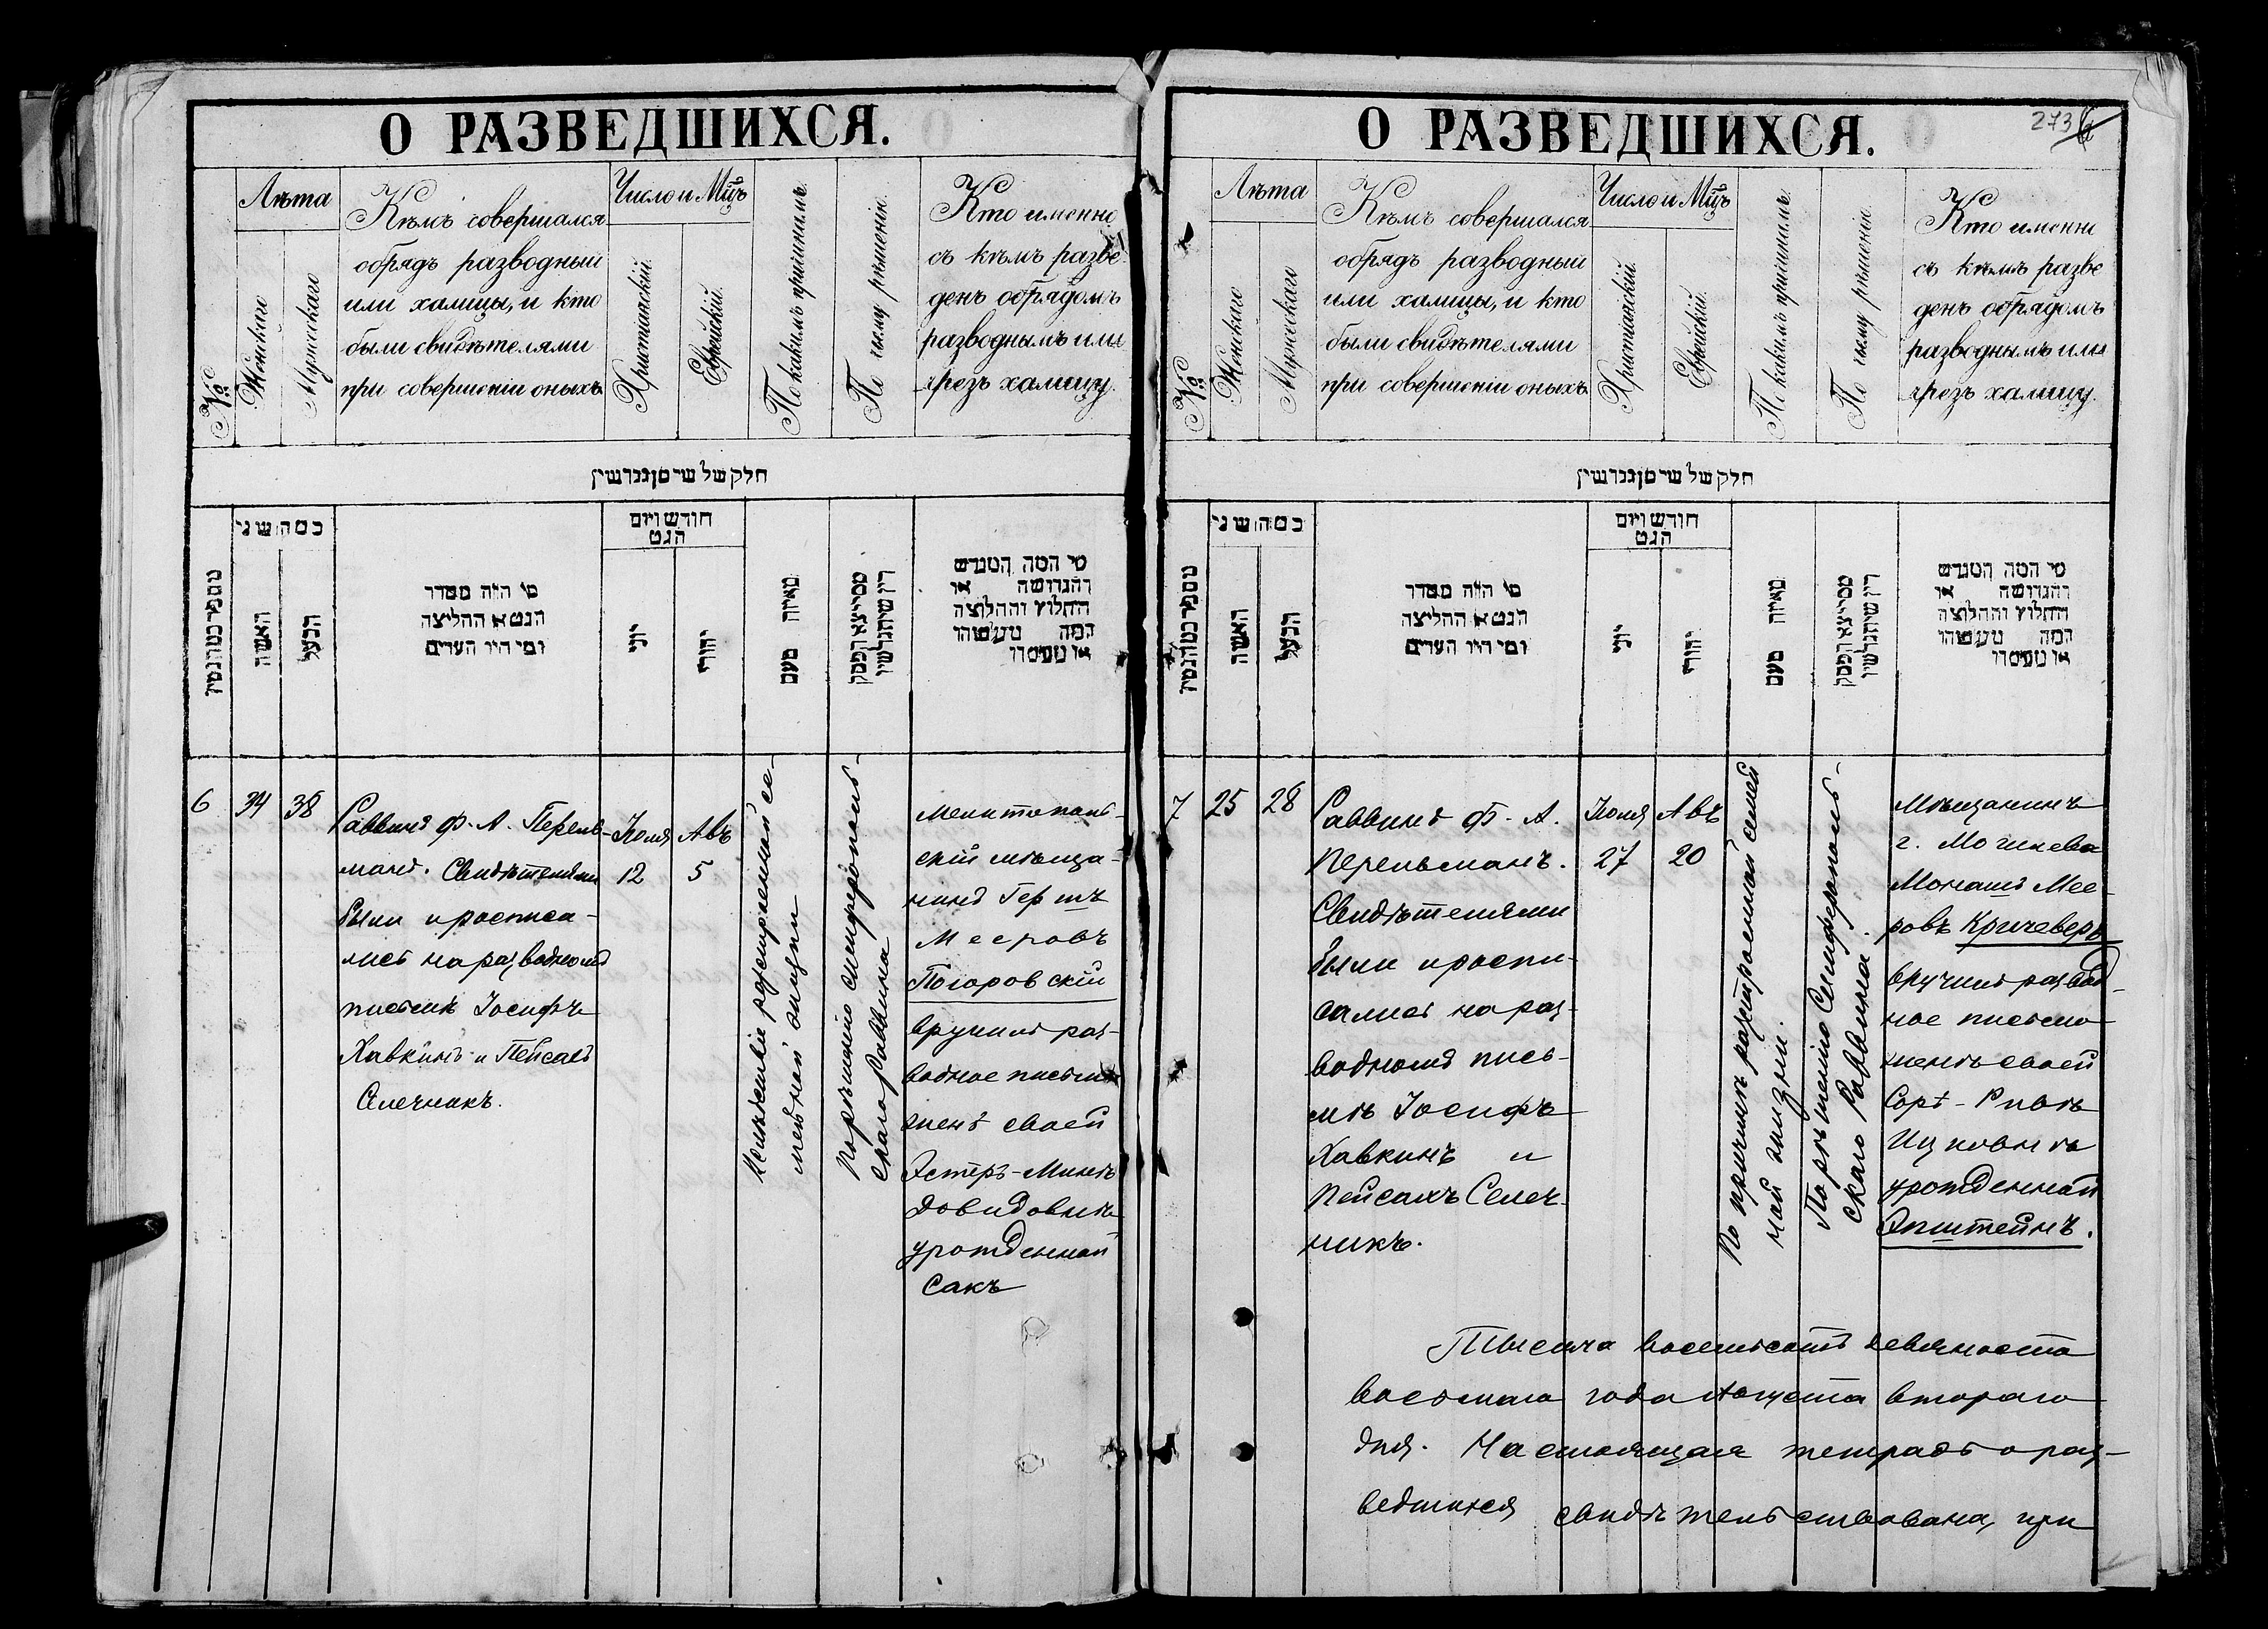 О РАЗВЕДШИХСЯ.
№
Лѣта
Женскаго
Мужескаго
Кѣмъ совершался
обрядъ разводный
или халицы, и кто
были свидѣтелями
при совершеніи оныхъ.
Число и Мцъ
Христіанскій.
Еврейскій.
По какимъ причинамъ.
По чьему рѣшенію.
Кто именно
съ кѣмъ разве
денъ обрядомъ
разводнымъ или
чрезъ халицу.
חלק של שיסן גנרשין
האשה
הבעל
מי היה מסדר
הגט או החליצה
ומי היו העדים
חודש ויום
הגט
יוני
יהודי
מאיזה טעם
מי המה המגרש
והגרושה או
החלוץ והחלוצה
6
34
38
Раввинъ Ф. А. Перель-
манъ. Свидѣтелями
были и росписа-
лись на разводномъ
письмѣ Іосифъ
Хавкинъ и Пейсахъ
Слечникъ.
Іюля
12
Авъ
5
семейной жизни
По рѣшенію Симферополь-
скаго Раввина
Мелитополь-
скій мѣща-
нинъ Гершъ
Мееровъ
Погоровскій
вручилъ раз-
водное письмо
женѣ своей
Эстеръ-Минѣ
Довидовнѣ
урожденной
Сакъ
О РАЗВЕДШИХСЯ.
273
№
Лѣта
Женскаго
Мужескаго
Кѣмъ совершался
обрядъ разводный
или халицы, и кто
были свидѣтелями
при совершеніи оныхъ.
Число и Мцъ
Христіанскій.
Еврейскій.
По какимъ причинамъ.
По чьему рѣшенію.
Кто именно
съ кѣмъ разве
денъ обрядомъ
разводнымъ или
чрезъ халицу.
חלק של שיסן גנרשין
האשה
הבעל
מי היה מסדר
הגט או החליצה
ומי היו העדים
חודש ויום
הגט
יוני
יהודי
מאיזה טעם
מי המה המגרש
והגרושה או
החלוץ והחלוצה
7
25
28
Раввинъ Ф. А.
Перельманъ.
Свидѣтелями
были и роспи-
сались на раз-
водномъ пись-
мѣ Іосифъ
Хавкинъ и
Пейсахъ Селеч-
никъ.
Іюля
27
Авъ
20
По причинѣ разстроенной семей
ной жизни.
По рѣшенію Симферополь-
скаго Раввина.
Мѣщанинъ
г. Могилева
Монашъ Мее-
ровъ Кричеверъ
вручилъ развод-
ное письмо
женѣ своей
Сорѣ-Ривѣ
Ицковнѣ
урожденной
Эпштейнъ.
Тысяча восемьсотъ девяносто
восьмого года Августа второго
дня. Настоящая тетрадь о раз-
ведшихся свидѣтельствована, при